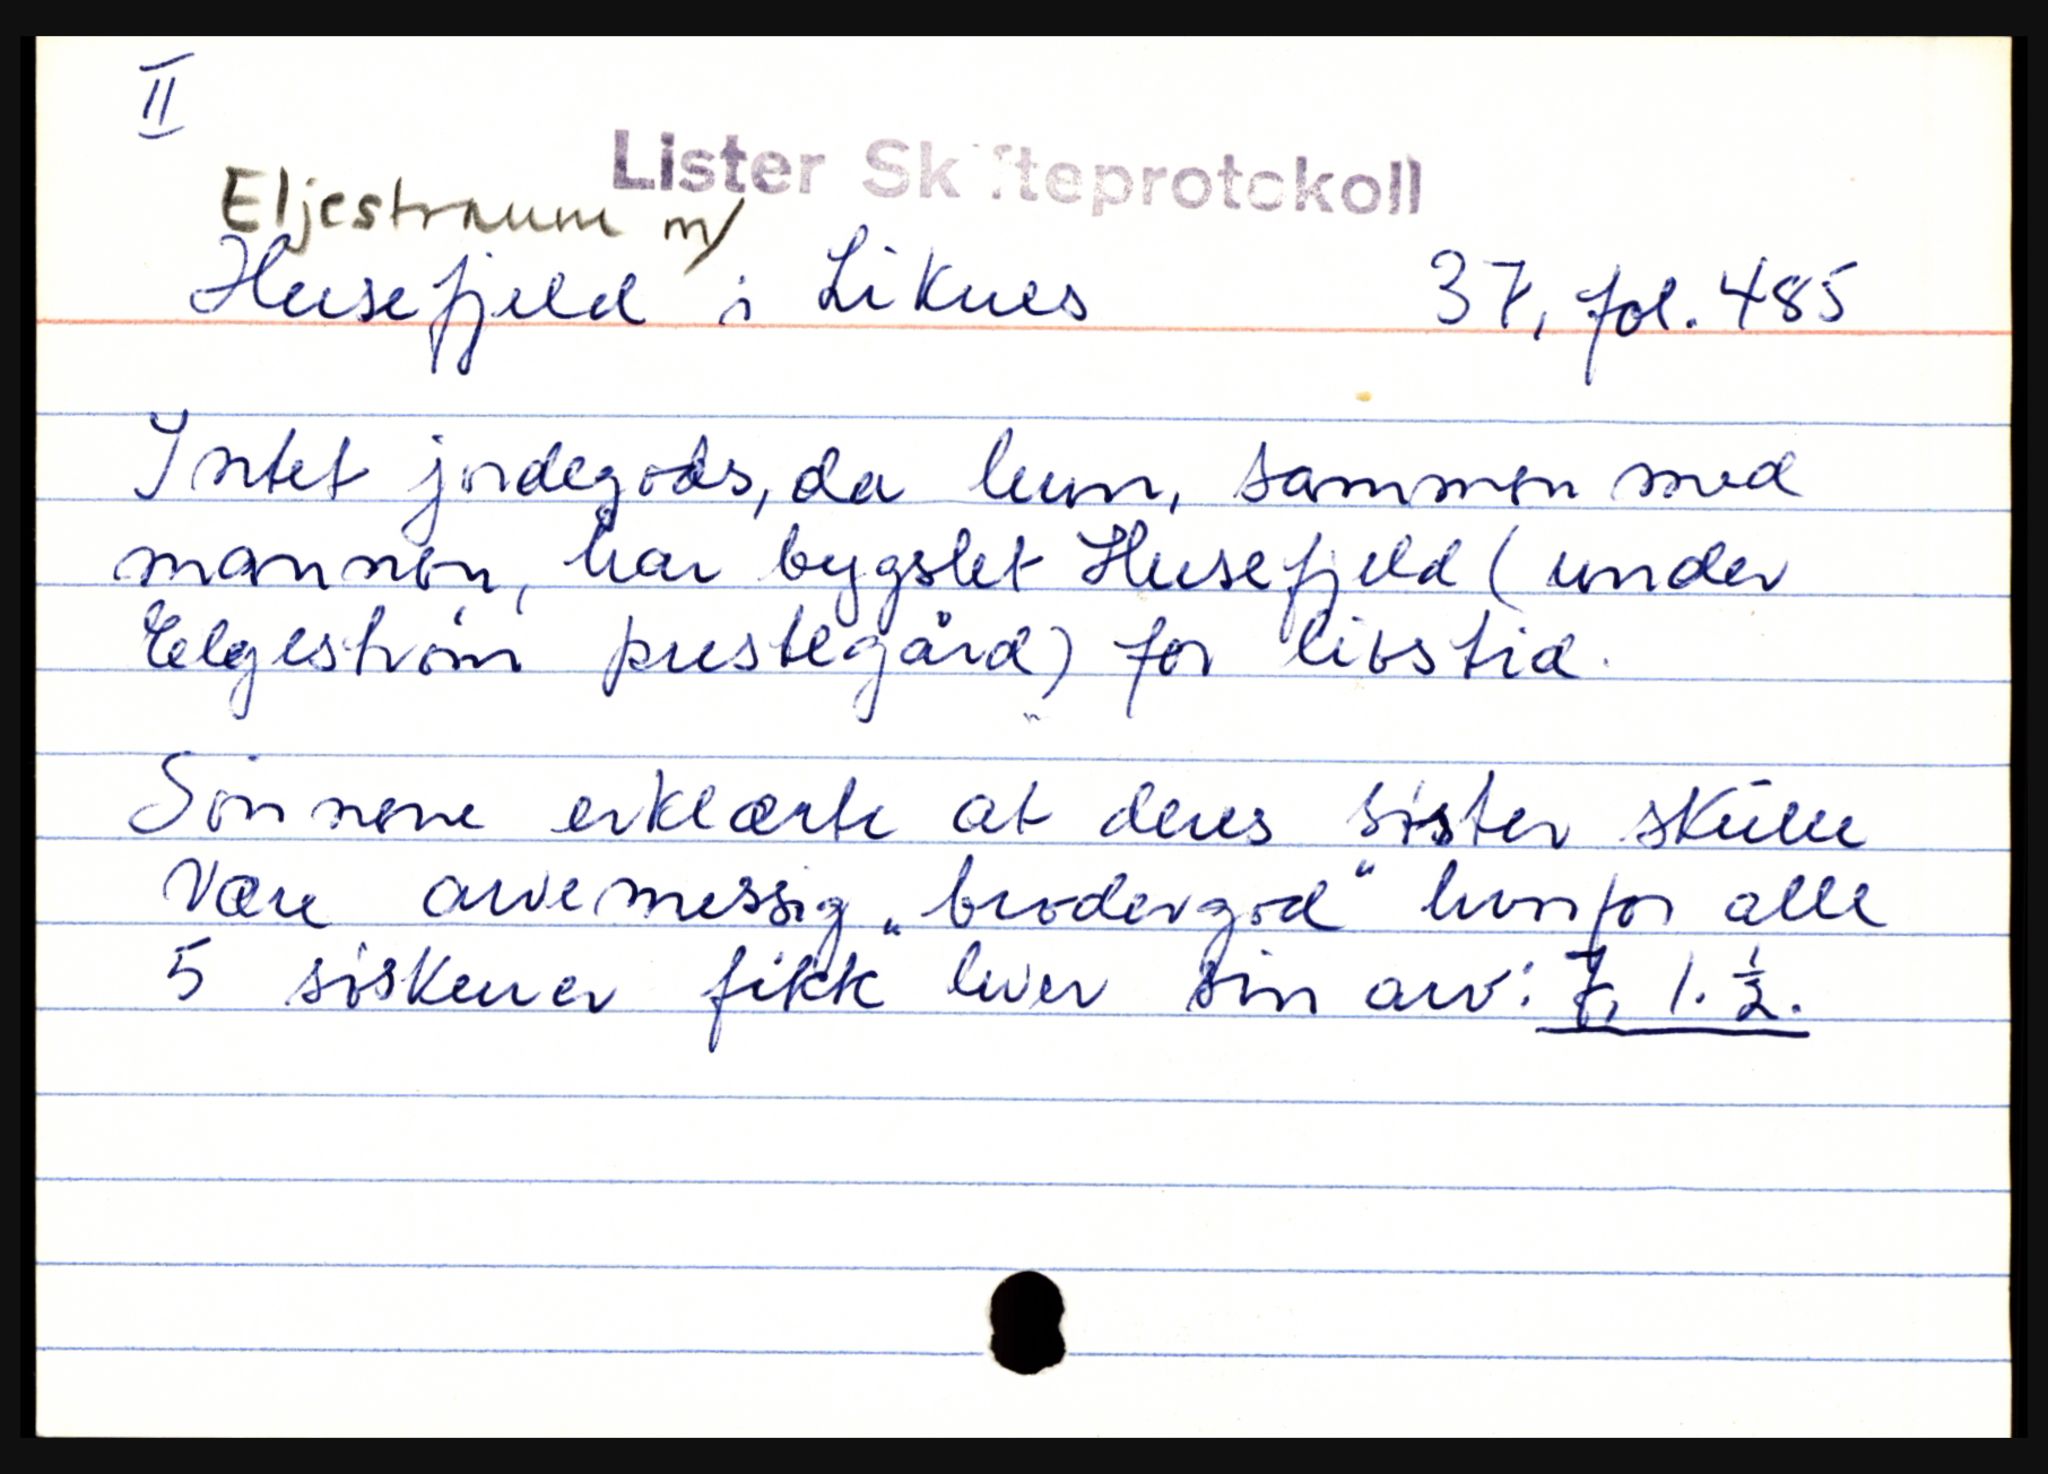 II
Lister Skifteprotokoll
Eljestraum m/
Husefjeld i Liknes 37, fol. 485
Intet jordegods, da hun, sammen med
mannen, har bygslet Husefjeld (under
Elgestrøm prestegård) for livstid.
Sønnene erklærte at deres søster skulle
være arvemessig „brodergod“ hvorfor alle
5 søskener fikk hver sin arv: 7, 1. ½.